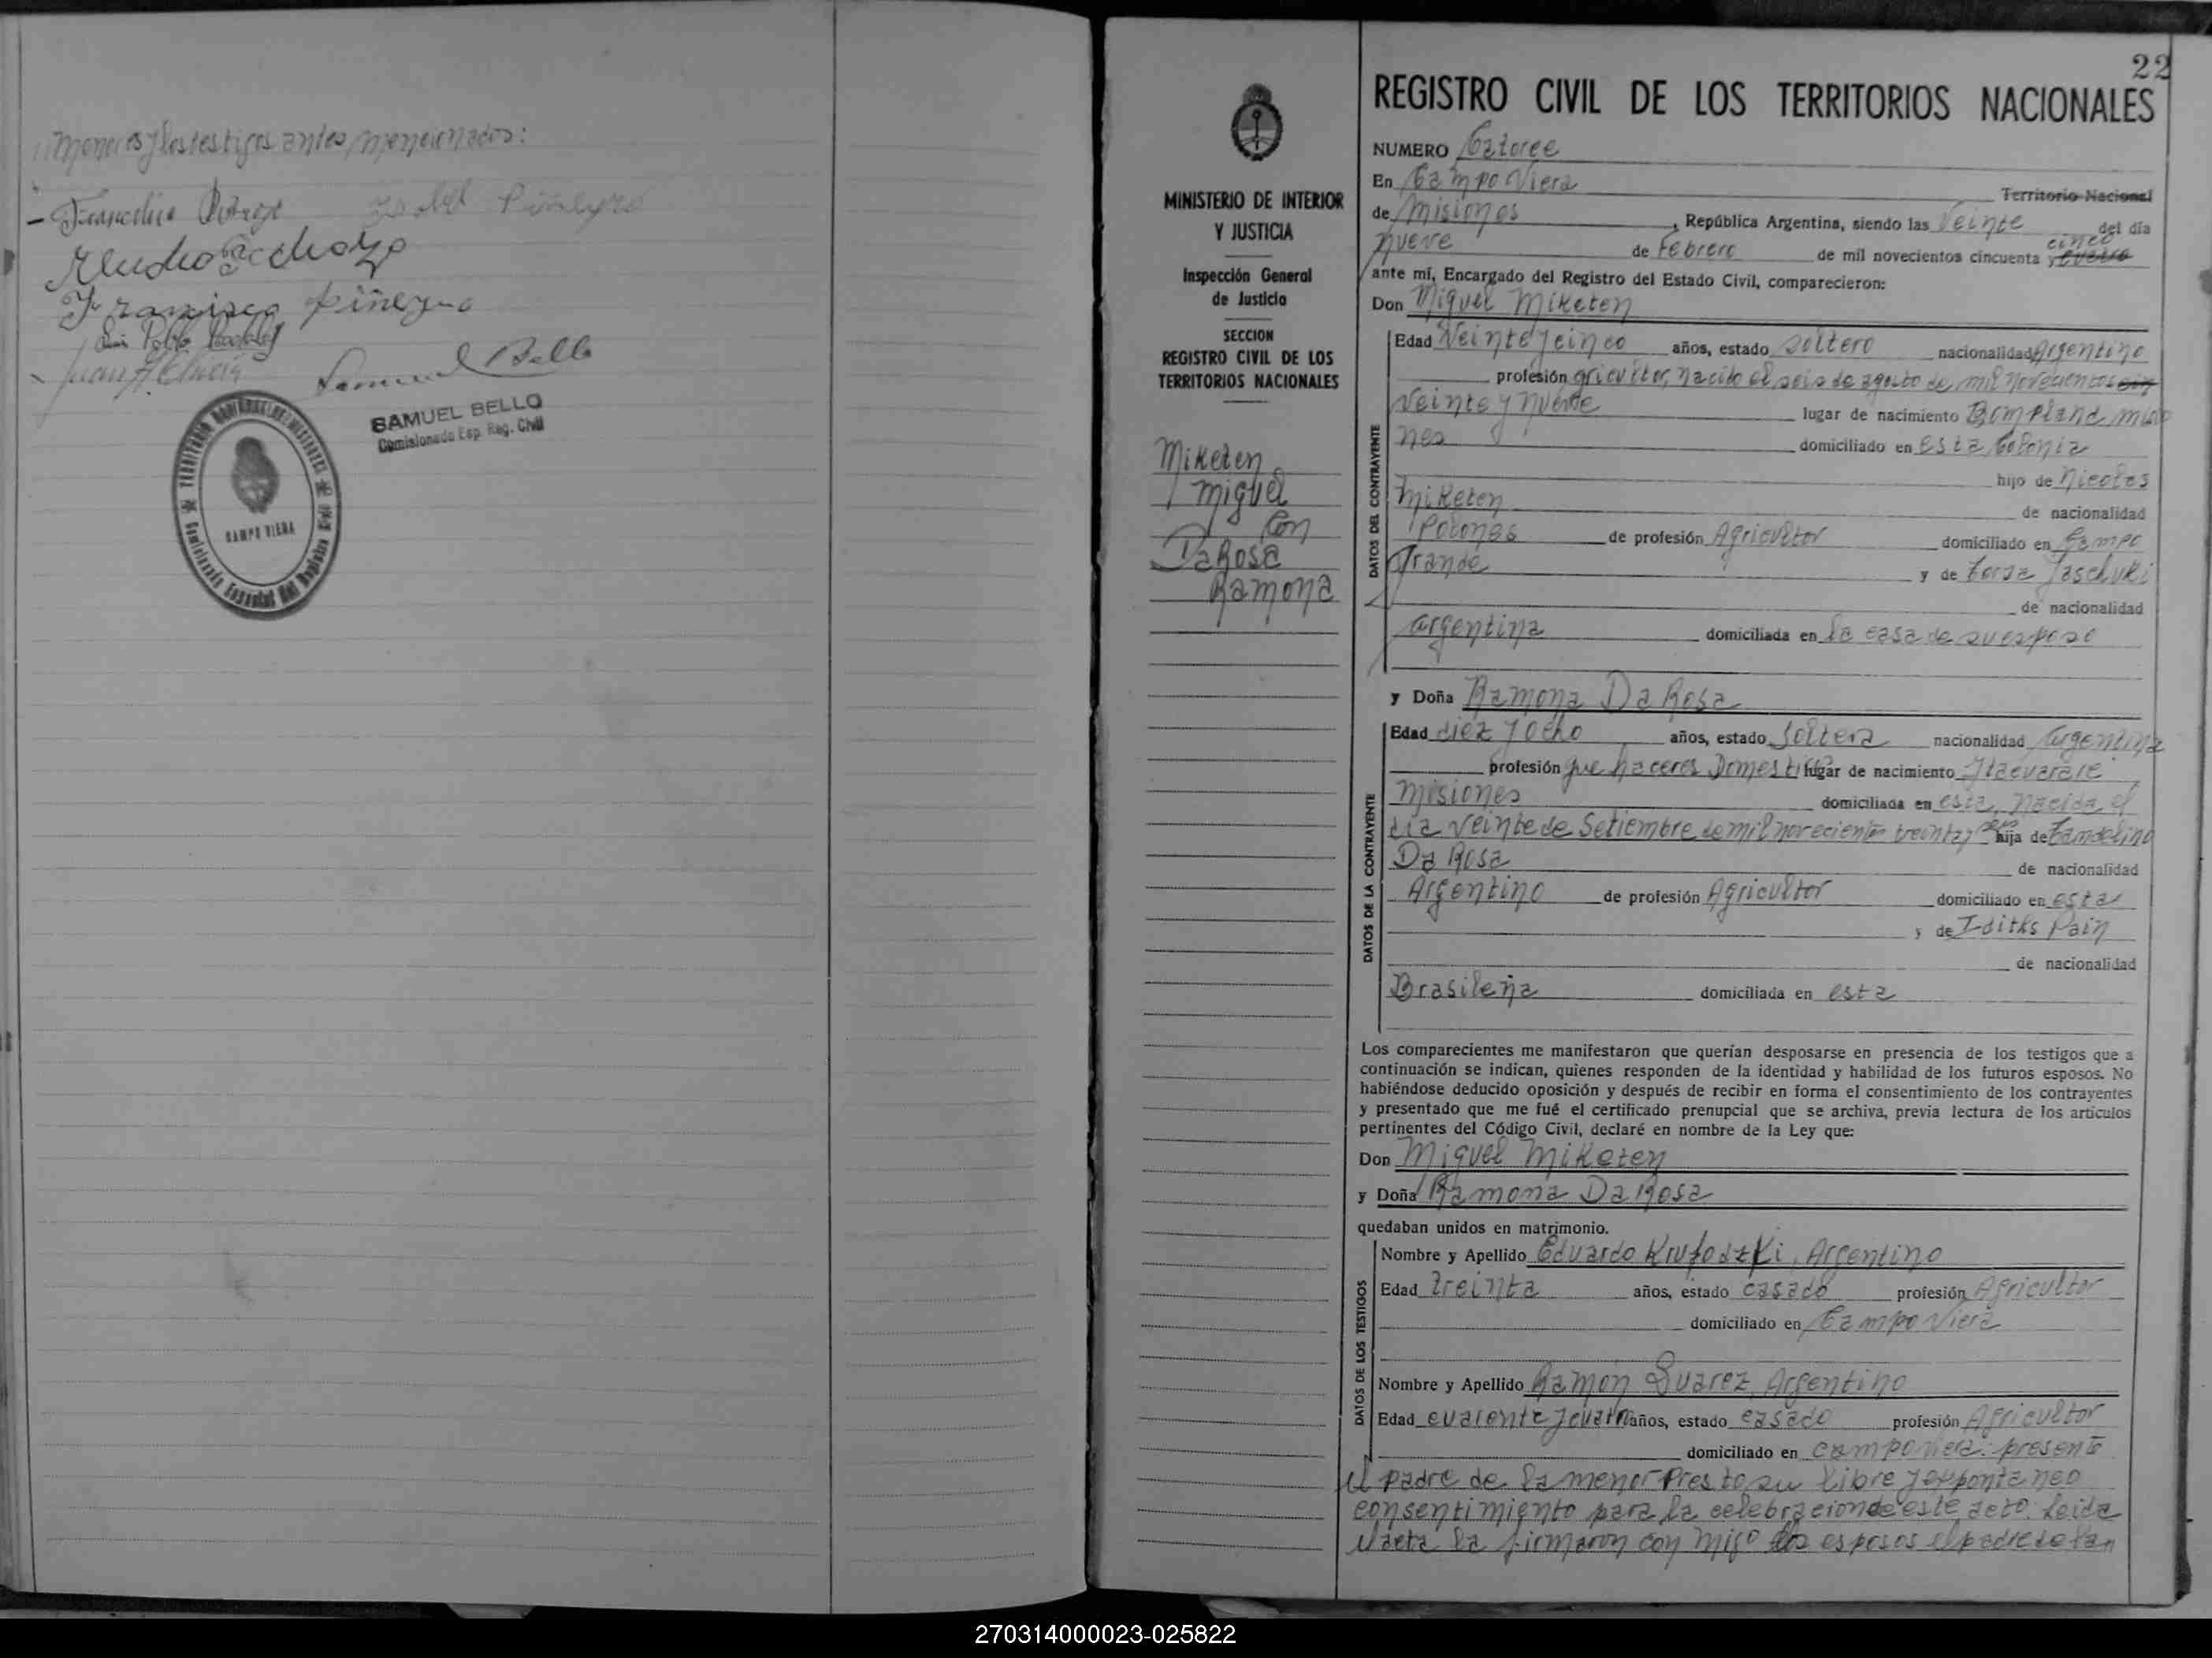 menores y los testigos antes mencionados:
Francisco Piñeyro
Samuel Bello
SAMUEL BELLO
Comisionado Esp. Reg. Civil
CAMPO VIERA
22
REGISTRO CIVIL DE LOS TERRITORIOS NACIONALES
MINISTERIO DE INTERIOR
Y JUSTICIA
Inspección General
de Justicia
SECCION
REGISTRO CIVIL DE LOS
TERRITORIOS NACIONALES
Miketen
Miguel
Con
Da Rosa
Ramona
NUMERO Catorce
En Campo Viera Territorio Nacional
de Misiones, República Argentina, siendo las Veinte del día
nueve de Febrero de mil novecientos cincuenta y cinco
ante mí, Encargado del Registro del Estado Civil, comparecieron:
Don Miguel Miketen
DATOS DEL CONTRAYENTE
Edad Veinte y cinco años, estado soltero nacionalidad Argentino
profesión gricultor, nacido el seis de agosto de mil novecientos
Veinte y nueve lugar de nacimiento Bompland misio
nes domiciliado en esta Colonia
hijo de Nicolas
Miketen de nacionalidad
Polones de profesión Agricultor domiciliado en Campo
Grande y de
de nacionalidad
argentina domiciliada en la casa de su esposo
y Doña Ramona Da Rosa
DATOS DE LA CONTRAYENTE
Edad diez y ocho años, estado Soltera nacionalidad Argentina
profesión que haceres Domesticos lugar de nacimiento Itacuarare
Misiones domiciliada en esta, nacida el
dia veinte de Setiembre de mil novecientos treinta y seis hija de
Da Rosa de nacionalidad
Argentino de profesión Agricultor domiciliado en esta
y de Idiths Pain
de nacionalidad
Brasileña domiciliada en esta
Los comparecientes me manifestaron que querían desposarse en presencia de los testigos que a
continuación se indican, quienes responden de la identidad y habilidad de los futuros esposos. No
habiéndose deducido oposición y después de recibir en forma el consentimiento de los contrayentes
y presentado que me fué el certificado prenupcial que se archiva, previa lectura de los artículos
pertinentes del Código Civil, declaré en nombre de la Ley que:
Don Miguel Miketen
y Doña Ramona Da Rosa
quedaban unidos en matrimonio.
DATOS DE LOS TESTIGOS
Nombre y Apellido Eduardo Argentino
Edad treinta años, estado casado profesión Agricultor
domiciliado en Campo Viera
Nombre y Apellido Ramón Suarez, Argentino
Edad cuarente y cuatro años, estado casado profesión Agricultor
domiciliado en campo viera: presente
el padre de la menor Presto su libre y expontaneo
consentimiento para la celebracion de este acto. Leida
el acta la firmaron con migo los esposos el padre de la
270314000023-025822